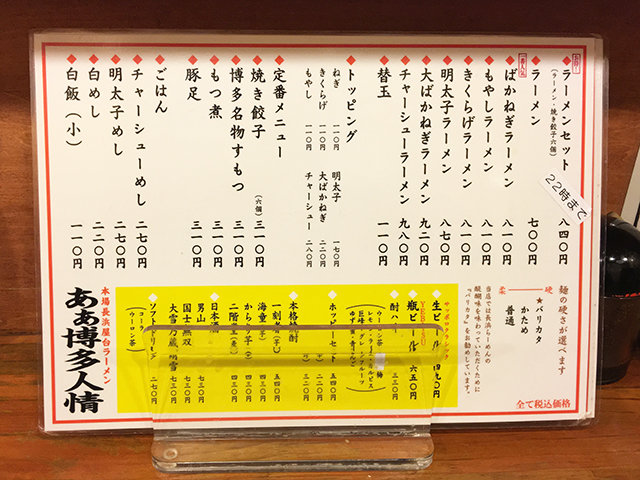 お得!
ラーメンセット 八四〇円
(ラーメン・焼き餃子六個)
22時まで
ラーメン 七〇〇円
一番人気
ばかねぎラーメン 八一〇円
もやしラーメン 八一〇円
きくらげラーメン 八一〇円
明太子ラーメン 八七〇円
大ばかねぎラーメン 九二〇円
チャーシューラーメン 九八〇円
替玉 一一〇円
トッピング
ねぎ 一一〇円
きくらげ 一一〇円
もやし 一一〇円
明太子 一七〇円
大ばかねぎ 二二〇円
チャーシュー 二八〇円
定番メニュー
焼き餃子(六個) 三一〇円
博多名物すもつ 三一〇円
もつ煮 三一〇円
豚足 三一〇円
ごはん
チャーシューめし 二七〇円
明太子めし 二七〇円
白めし 二二〇円
白飯(小) 一一〇円
麺の硬さが選べます
硬 ★バリカタ
かため
柔 普通
当店では長浜らーめんの
醍醐味を味わっていただくために
『バリカタ』をお勧めしています。
全て税込価格
生ビール 四九〇円
YEBISU
瓶ビール 六五〇円
酎ハイ 三三〇円
ホッピーセット
本格焼酎
一刻者(芋) 五四〇円
海童(芋)
からり芋(芋) 四三〇円
二階堂(麦) 四三〇円
日本酒
男山 五四〇円
国士無双 七三〇円
大雪乃蔵 七三〇円
ソフトドリンク 二七〇円
コーラ
ウーロン茶
本場長浜屋台ラーメン
あぁ博多人情